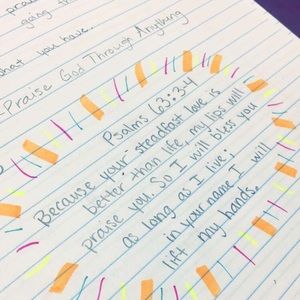 pra
going th
what you have.
Praise God Through Anything
Psalms 63:3-4
Because your steadfast love is
better than life, my lips will
praise you. So I will bless you
as long as I live;
in your name I will
lift my hands.